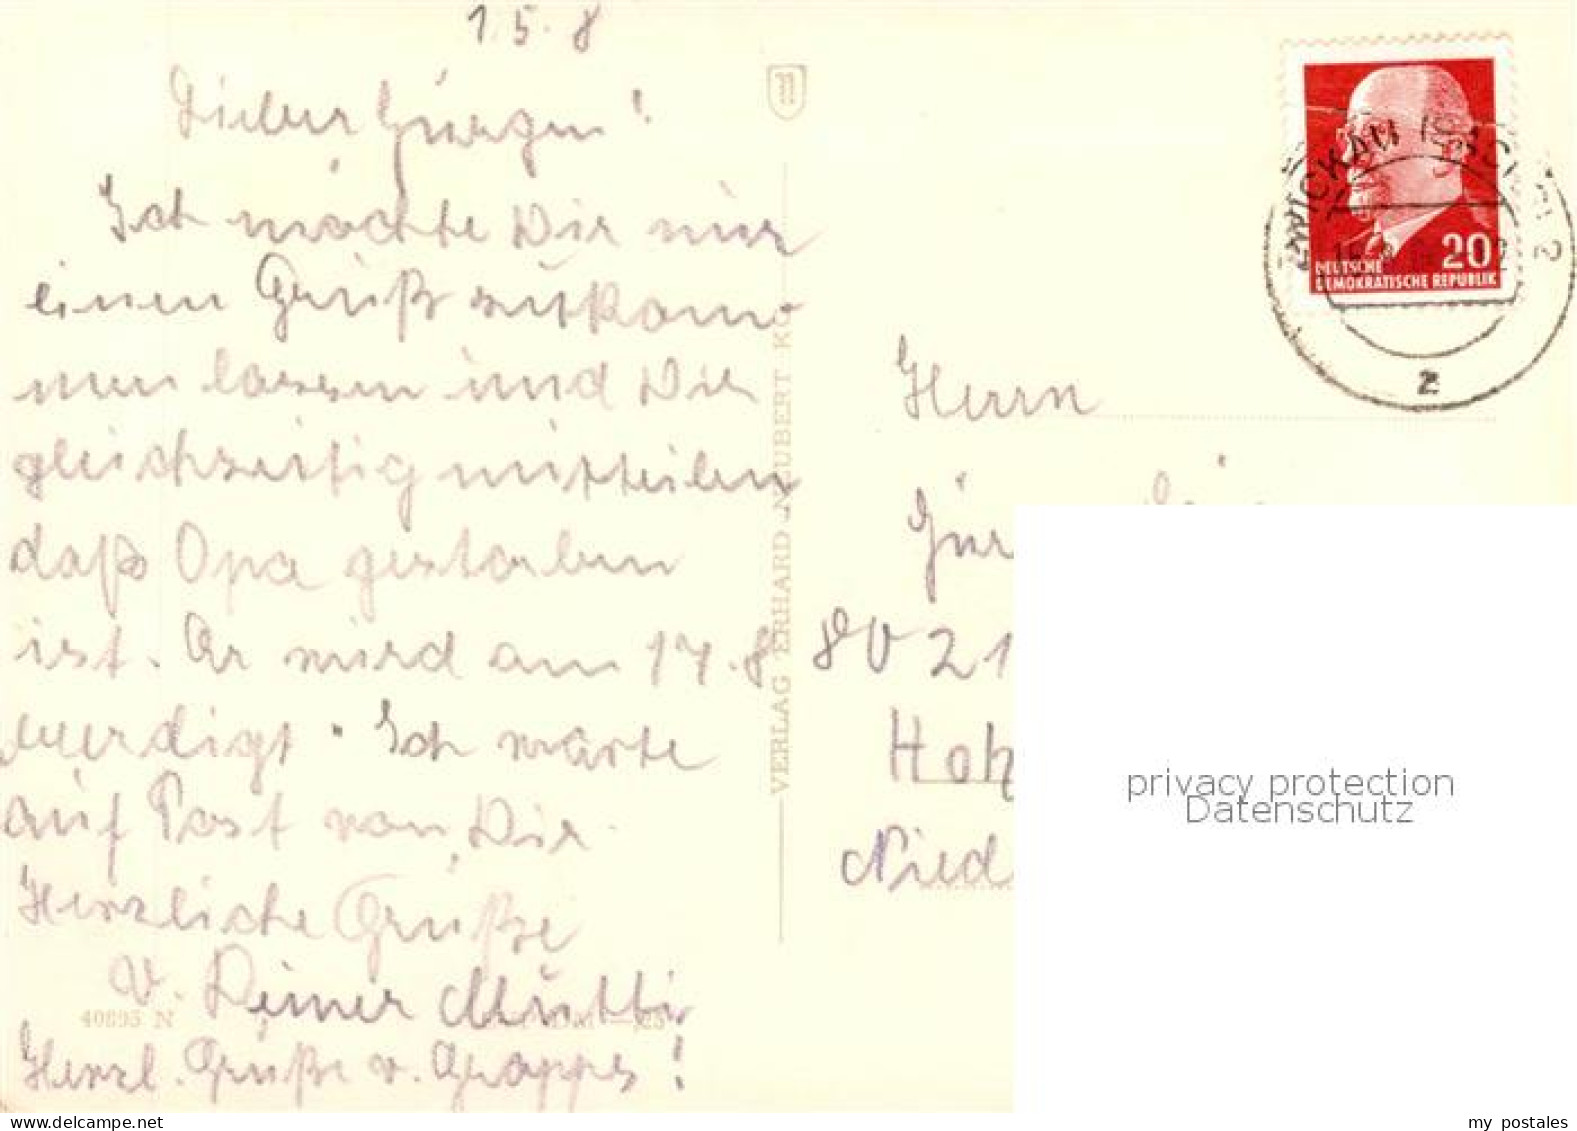 15.8
Lieber Jürgen!
Ich möchte Dir nur
einen Gruß zukom-
men lassen und Dir
gleichzeitig mitteilen
daß Opa gestorben
ist. Er wird am 17.8
beerdigt. Ich warte
auf Post von Dir.
Herzliche Grüße
v. Deiner Mutti
Herzl. Grüße v. !
40895 N
VERLAG ERHARD NEUBERT
20
DEUTSCHE
DEMOKRATISCHE REPUBLIK
ZWICKAU 2
z
Herrn
Jür
8021
Hoh
Nied
privacy protection
Datenschutz
www.delcampe.net
my postales